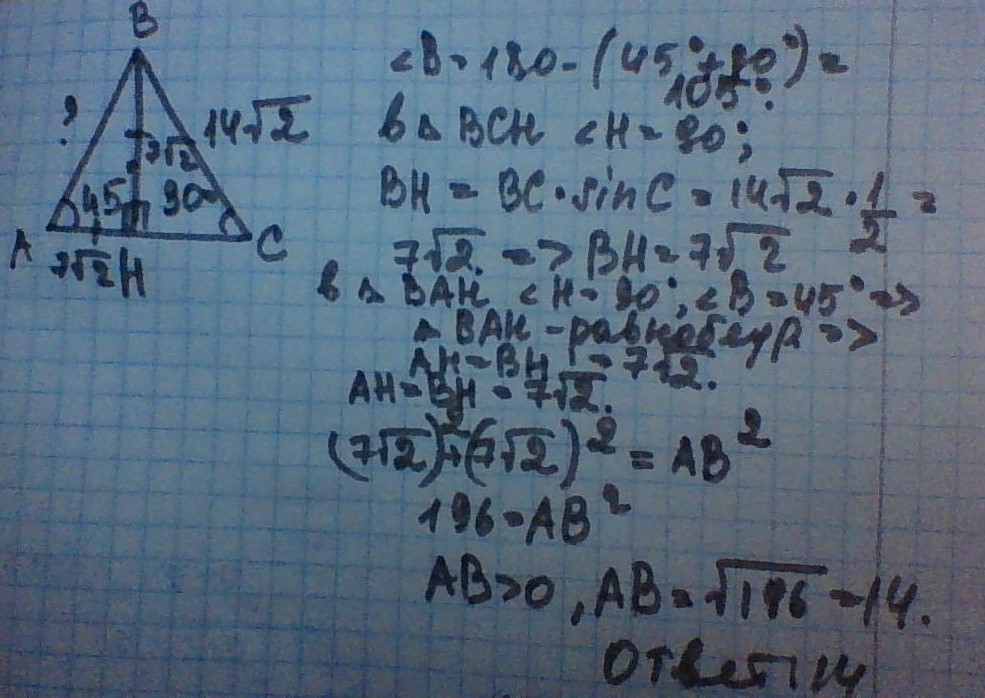 B
?
14√2
7√2
45
30
A
C
7√2 H
<B = 180 - (45° + 30°) =
105°.
в △ BCH <H = 90°;
BH = BC · sin C = 14√2 · 1/2 =
7√2. => BH = 7√2
в △ BAH <H = 90°, <B = 45° =>
△ BAH - равнобедр =>
AH = BH = 7√2.
AH = BH = 7√2.
(7√2)² + (7√2)² = AB²
196 = AB²
AB > 0, AB = √196 = 14.
Ответ: 14